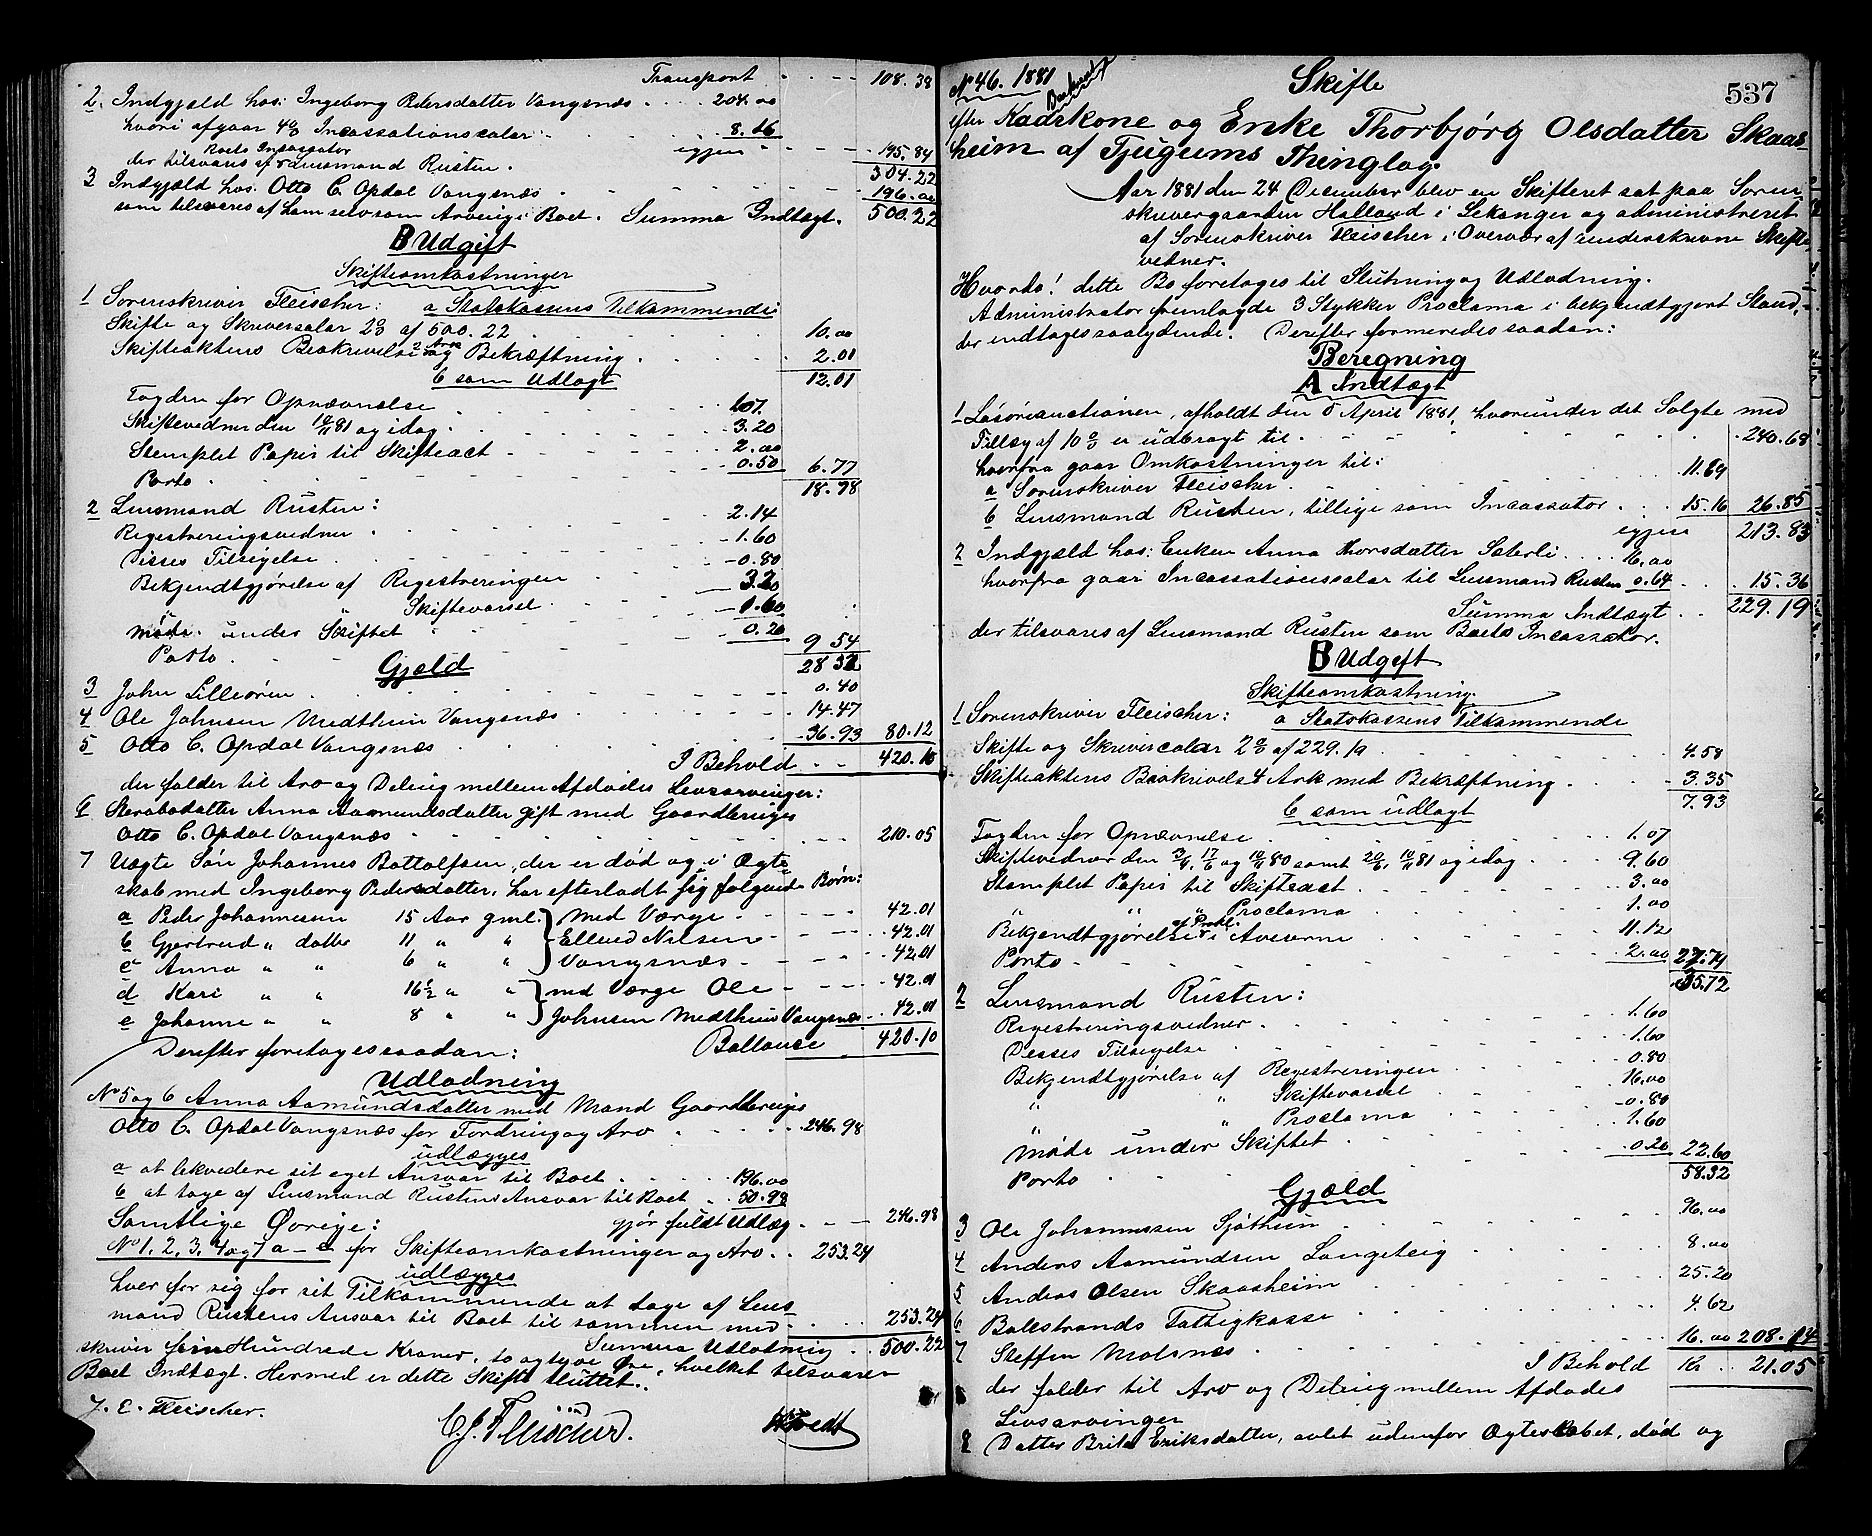 Transport 108.38
2. Indgjæld hos: Ingeborg Pedersdatter Vangsnæs 204.00
hvori afgaar 4% Incassationssalær 8.16
igjen 195.84
Boets Incassator
der tilsvares af Lensmand Rusten. 304.22
3 Indgjæld hos: Otto C. Opdal Vangsnæs 196.00
som tilsvares af ham selv som Arving i Boet. Summa Indtægt. 500.22
B Udgift
Skifteomkostninger
1 Sorenskriver Fleischer: a Statskassens Tilkommende
Skifte og Skriversalær 2% af 500.22 10.00
Skifteaktens Beskrivelse 2 Ark og Bekræftning 2.01
b som Udlagt 12.01
Fogden for Opnævnelse 1.07
Skiftevidner den 10/11 81 og idag 3.20
Stemplet Papir til Skifteact 2.00
Porto 0.50 6.77
18.78
2 Lensmand Rusten:
Registreringsvidner 2.14
Disses Tilsigelse 1.60
Bekjendtgjørelse af Registreringen 0.80
" " Skiftevarsel 3.20
Møde under Skiftet 1.60
Porto 0.20 9 54
Gjæld 28 32
3 John Lilleøren 0.40
4 Ole Johnsen Medthun Vangsnæs 14.47
5 Otto C. Opdal Vangsnæs 36.93 80.12
I Behold 420.10
der falder til Arv og Deling mellem Afdødes Livsarvinger:
6 Sterbsdatter Anna Aamundsdatter gift med Gaardbruger
Otto C. Opdal Vangsnæs 210.05
7 Uægte Søn Johannes Bottolfsen, der er død og i Ægte-
skab med Ingeborg Pedersdatter, har efterladt sig følgende Børn:
a Peder Johannessen 15 Aar gml. } Med Værge 42.01
b Gjertrud " datter 11 " " Ellend Nilsen 42.01
c Anna " " 6 " " Vangsnæs 42.01
d Kari " " 16½ " " } med Værge Ole 42.01
e Johanne " " 8 " " Johnsen Medthun Vangsnæs 42.01
Derefter foretoges saadan: Ballance 420.10
Udlodning
No 5 og 6 Anna Aamundsdatter med Mand Gaardbruger
Otto C. Opdal Vangsnæs for Fordring og Arv 246.98
udlægges
a at likvidere sit eget Ansvar til Boet 196.00
b at tage af Lensmand Rustens Ansvar til Boet 50.98
Samtlige Øvrige: gjør fuldt Udlæg 246.98
No 1, 2, 3, 4 og 7 a–e for Skifteomkostninger og Arv 253.24
udlægges
hver for sig for sit Tilkommende at tage af Lens-
mand Rustens Ansvar til Boet til sammen med 253.24
Summa Udlodning 500.22
skriver femHundrede Kroner, to og tyve Øre, hvilket tilsvarer
Boets Indtægt. Hermed er dette Skifte sluttet.
J. E. Fleischer. C. J. Fleischer.
No 46. 1881 Skifte 537
efter Kadskone og Enke Thorbjørg Olsdatter Skaas-
heim af Tjugums Thinglag.
Aar 1881 den 24 December blev en Skifteret sat paa Soren-
skrivergaarden Halland i Lekanger og administreret
af Sorenskriver Fleischer i Overvær af underskrevne Skifte-
vidner.
Hvorda! dette Bo foretages til Slutning og Udlodning.
Administrator fremlagde 3 Stykker Proclama i bekjendtgjort Stand,
der indtages saalydende. Derefter formeredes saadan:
Beregning
A Indtægt
1 Løsøreauctionen, afholdt den 5 April 1881, hvorunder det Solgte med
Tillæg af 10% er udbragt til 240.68
hvorfra gaar Omkostninger til:
a Sorenskriver Fleischer 11.69
b Lensmand Rusten, tillige som Incassator 15.16 26.85
igjen 213.83
2 Indgjæld hos: Enken Anna Thorsdatter Sæterli 16.00
hvorfra gaar Incassationssalær til Lensmand Rusten 0.64 15.36
Summa Indtægt 229.19
der tilsvares af Lensmand Rusten som Boets Incassator.
B Udgift
Skifteomkostning
1 Sorenskriver Fleischer: a Statskassens Tilkommende
Skifte og Skriversalær 2% af 229.19 4.58
Skifteaktens Beskrivels 4 Ark med Bekræftning 3.35
b som udlagt 7.93
Fogden for Opnævnelse 1.07
Skiftevidner den 3/4, 17/6 og 10/11 80 samt 20/6, 10/11 81 og idag 9.60
Stemplet Papir til Skifteact 3.00
" " " Proclama 1.00
Bekjendtgjørelse af Prokl. i Aviserne 11.12
Porto 2.00 27.79
35.72
2 Lensmand Rusten:
Registreringsvidner 1.60
Disses Tilsigelse 1.60
Bekjendtgjørelse af Registreringen 0.80
" " Skiftevarsel 16.00
" " Proclama 0.80
Møde under Skiftet 1.60
Porto 0.20 22.60
Gjæld 58.32
3 Ole Johannessen Sjøthun 96.00
4 Anders Aamundsen Langeteig 8.00
5 Anders Olsen Skaasheim 25.20
6 Balestrands Fattigkasse 4.62
7 Steffen Molsnæs 16.00 208.14
I Behold Kr 21.05
der falder til Arv og Deling mellem Afdødes
Livsarvinger
8 Datter Brite Eriksdatter, avlet udenfor Ægteskabet, død og